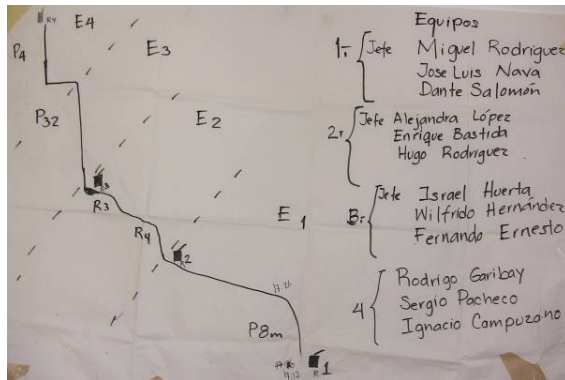 R4
E4
P4
E3
P32
E2
R3
R3
E1
R4
R2
17:26
P8m
17:12
R1
Equipos
1.- Jefe Miguel Rodríguez
Jose Luis Nava
Dante Salomón
2.- Jefe Alejandra López
Enrique Bastida
Hugo Rodríguez.
3.- Jefe Israel Huerta
Wilfrido Hernández
Fernando Ernesto
4 Rodrigo Garibay
Sergio Pacheco
Ignacio Campuzano